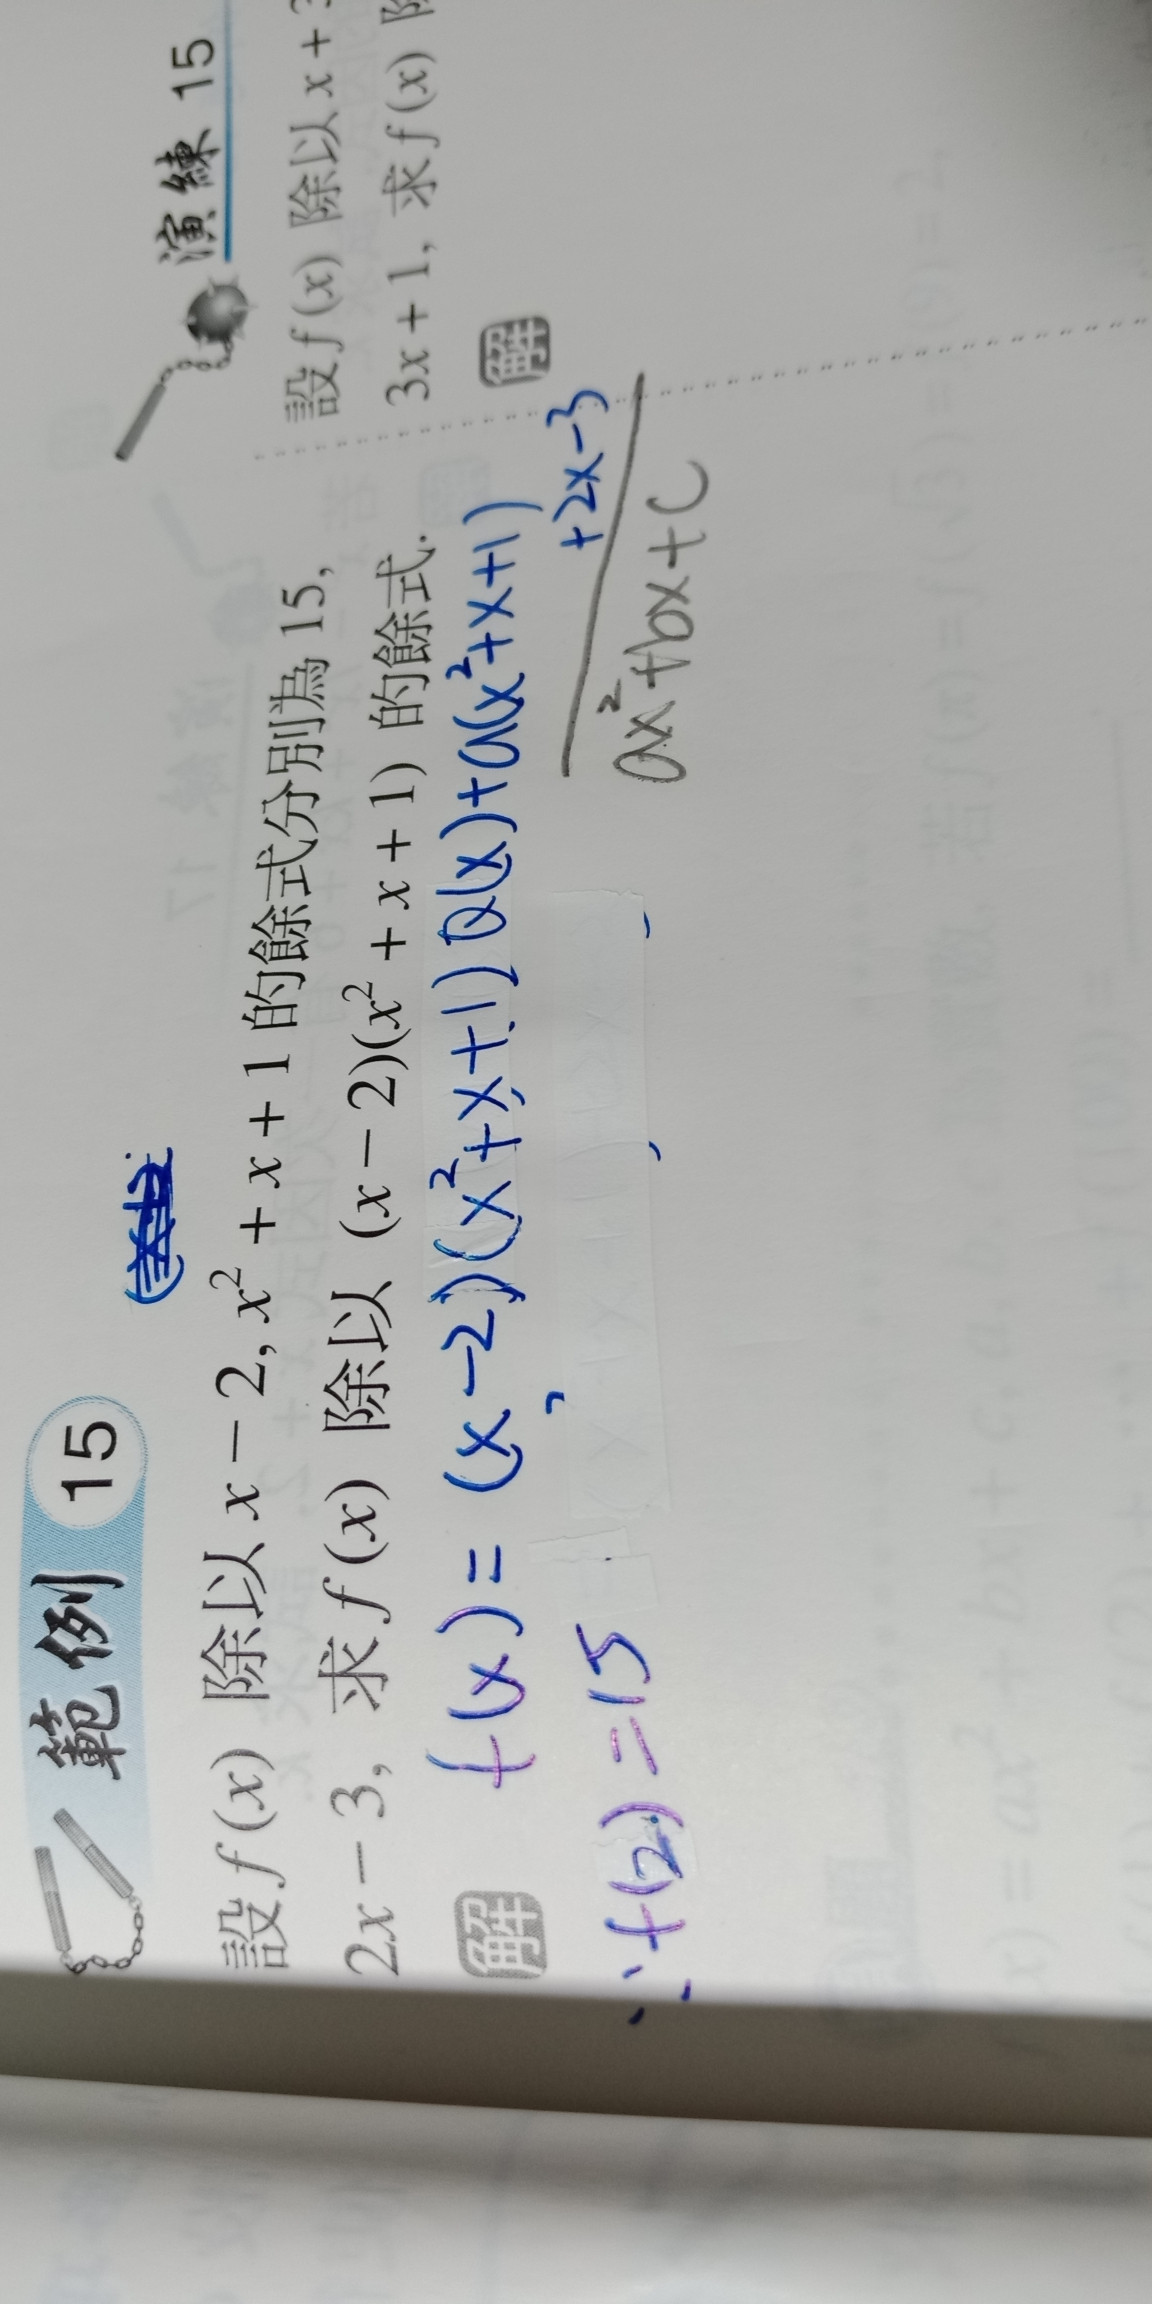 範例 15
設 f(x) 除以 x − 2, x² + x + 1 的餘式分別為 15,
2x − 3, 求 f(x) 除以 (x − 2)(x² + x + 1) 的餘式.
解
f(x) = (x−2)(x²+x+1)Q(x)+a(x²+x+1)
+2x−3
ax²+bx+c
∵f(2)=15
演練 15
設 f(x) 除以 x +
3x + 1, 求 f(x)
解